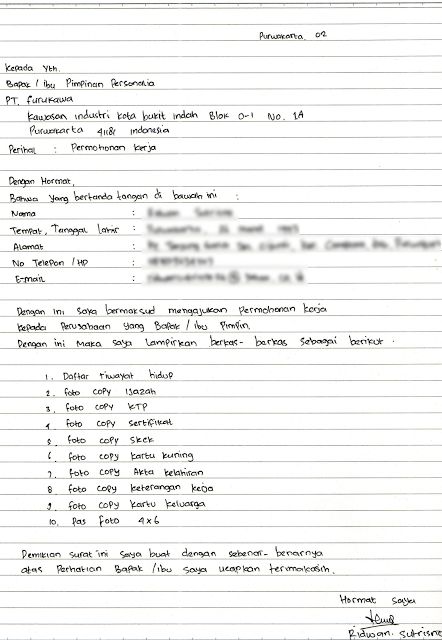 Purwakarta, 02
Kepada Yth.
Bapak / Ibu Pimpinan Personalia
PT. Furukawa
Kawasan industri kota bukit indah Blok O-1 No. 2A
Purwakarta 41181 Indonesia
Perihal : Permohonan kerja
Dengan Hormat,
Bahwa yang bertanda tangan di bawah ini :
Nama :
Tempat, Tanggal Lahir :
Alamat :
No Telepon / HP :
E-mail :
Dengan ini saya bermaksud mengajukan Permohonan kerja
kepada Perusahaan yang Bapak / Ibu Pimpin.
Dengan ini Maka saya lampirkan berkas-berkas sebagai berikut :
1. Daftar riwayat hidup
2. foto copy Ijazah
3. foto copy KTP
4 foto copy sertifikat
5. foto copy skck
6 foto copy kartu kuning
7. foto copy Akta kelahiran
8 foto copy keterangan kerja
9. foto copy kartu keluarga
10. Pas foto 4x6
Demikian surat ini saya buat dengan sebenar-benarnya
atas Perhatian Bapak / ibu saya ucapkan terimakasih.
Hormat saya
Ridwan. Sutrisno